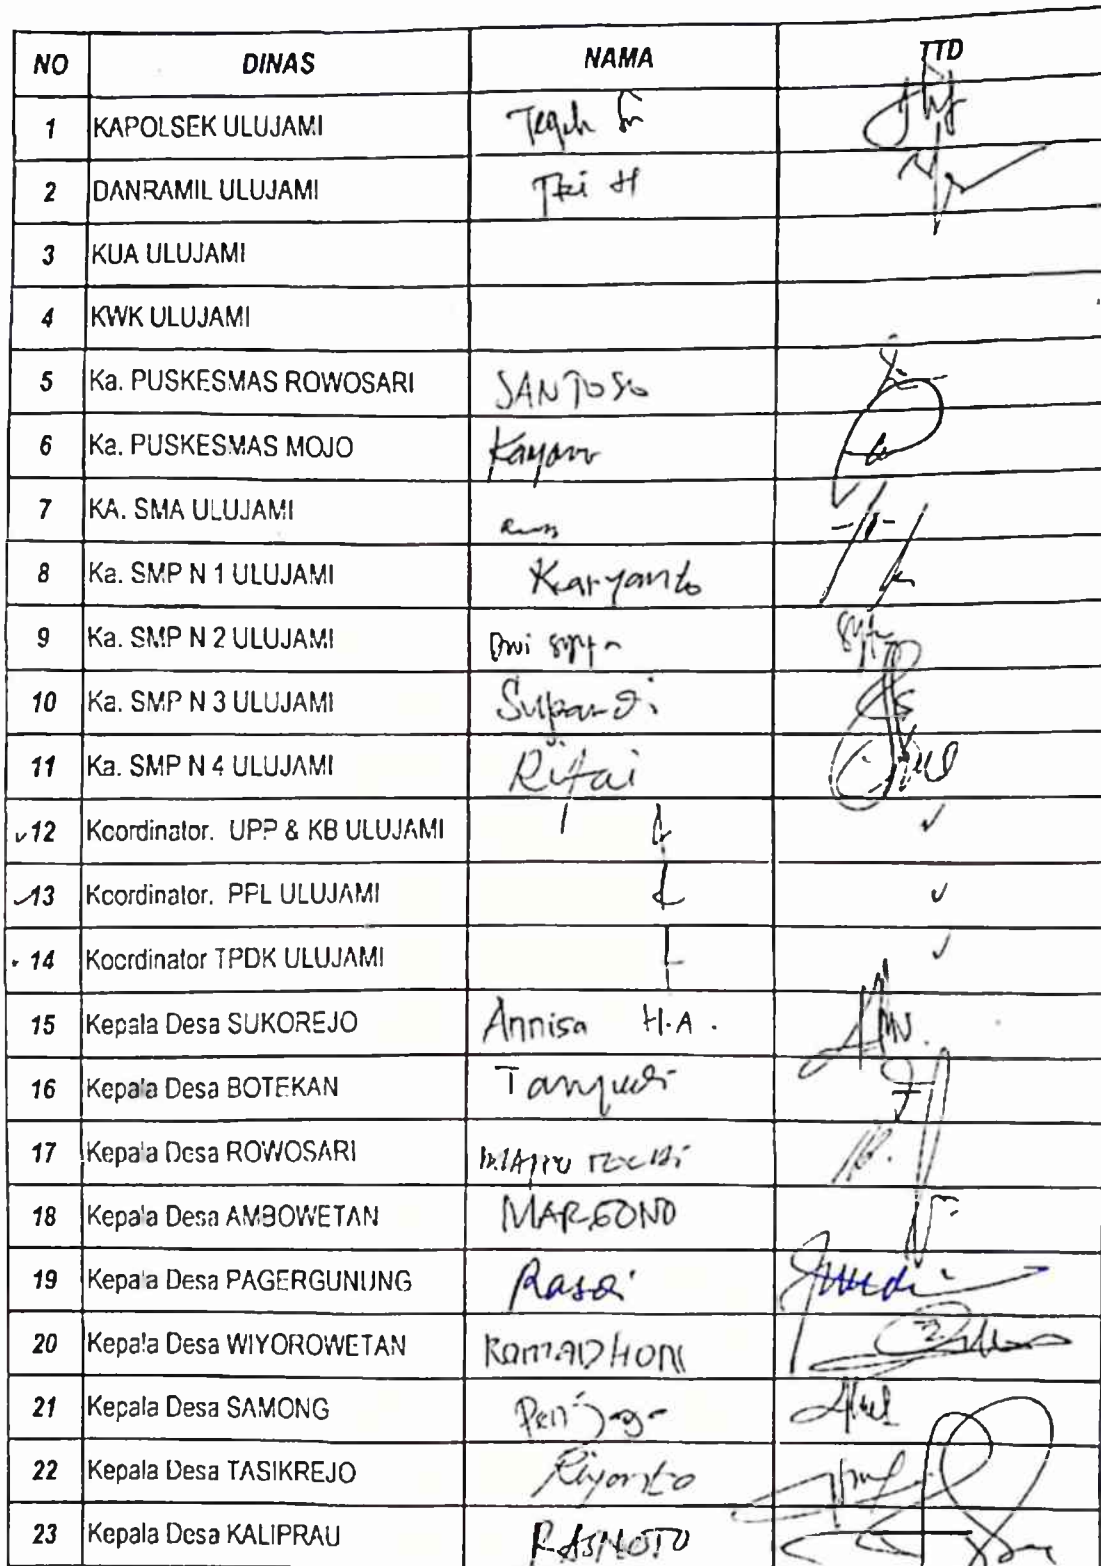 NO DINAS NAMA TTD
1 KAPOLSEK ULUJAMI Teguh
2 DANRAMIL ULUJAMI Tri H
3 KUA ULUJAMI
4 KWK ULUJAMI
5 Ka. PUSKESMAS ROWOSARI SANTOSO
6 Ka. PUSKESMAS MOJO
7 KA. SMA ULUJAMI
8 Ka. SMP N 1 ULUJAMI Karyanto
9 Ka. SMP N 2 ULUJAMI Dwi
10 Ka. SMP N 3 ULUJAMI Supandi
11 Ka. SMP N 4 ULUJAMI Rifai
✓12 Koordinator. UPP & KB ULUJAMI ✓
✓13 Koordinator. PPL ULUJAMI ✓
14 Koordinator TPDK ULUJAMI ✓
15 Kepala Desa SUKOREJO Annisa H.A.
16 Kepala Desa BOTEKAN
17 Kepala Desa ROWOSARI
18 Kepala Desa AMBOWETAN MARGONO
19 Kepala Desa PAGERGUNUNG Rasdi
20 Kepala Desa WIYOROWETAN ROMADHONI
21 Kepala Desa SAMONG
22 Kepala Desa TASIKREJO Riyanto
23 Kepala Desa KALIPRAU RASNOTO